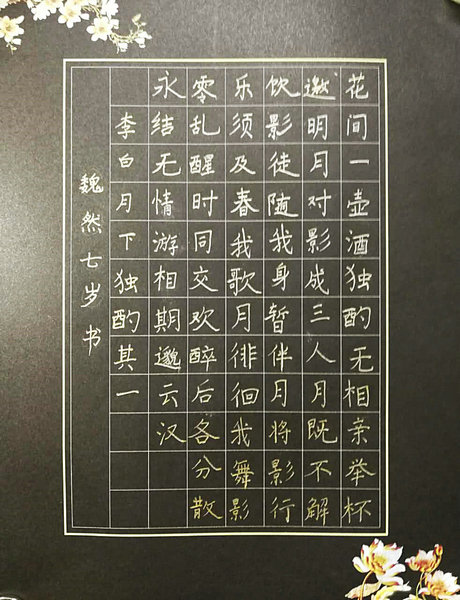 花间一壶酒独酌无相亲举杯
邀明月对影成三人月既不解
饮影徒随我身暂伴月将影行
乐须及春我歌月徘徊我舞影
零乱醒时同交欢醉后各分散
永结无情游相期邈云汉
李白月下独酌其一
魏然七岁书